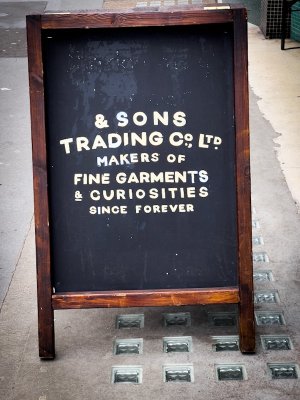 & SONS
TRADING CO., LTD
MAKERS OF
FINE GARMENTS
& CURIOSITIES
SINCE FOREVER